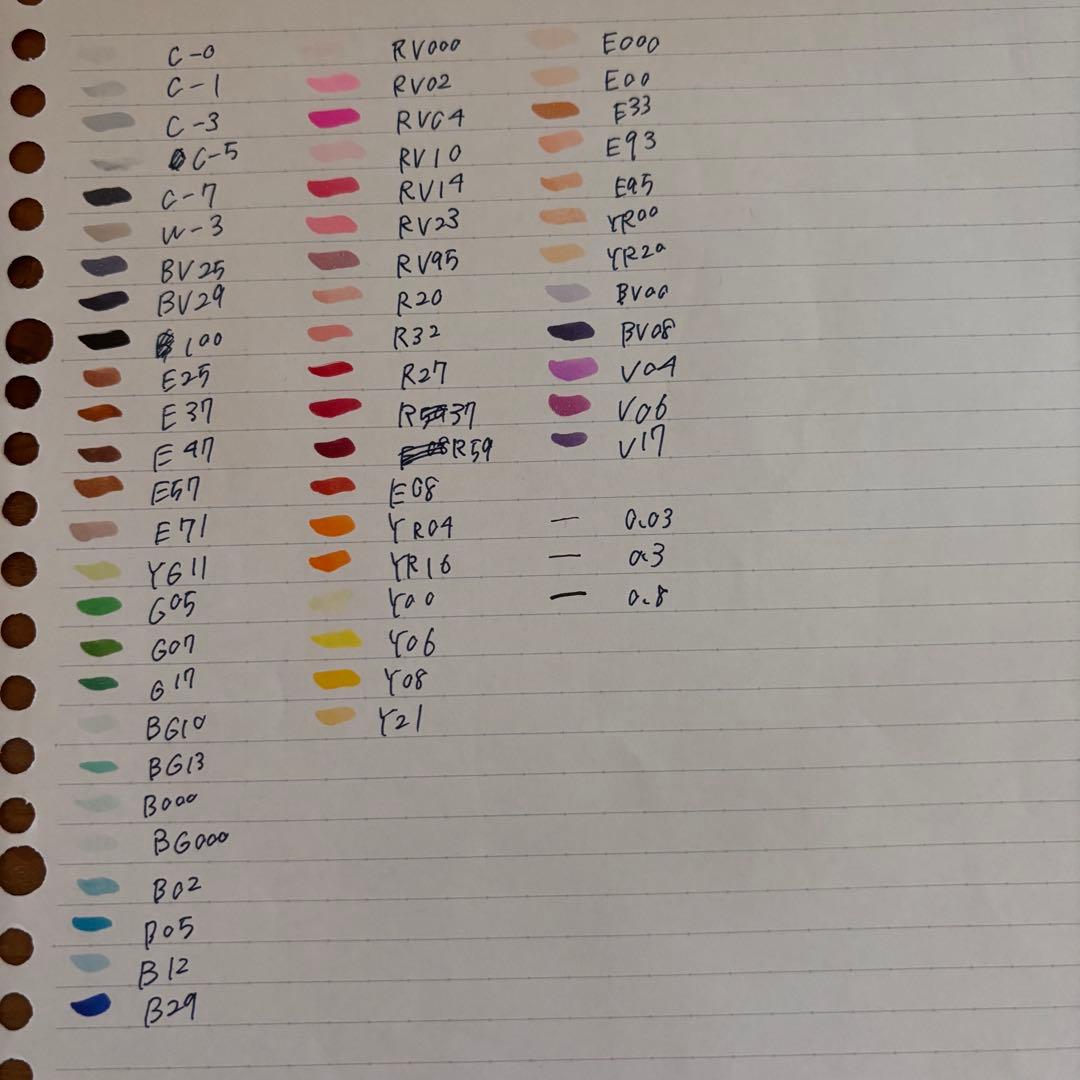 C-0
C-1
C-3
C-5
C-7
W-3
BV25
BV29
100
E25
E37
E47
E57
E71
YG11
G05
G07
G17
BG10
BG13
B000
BG000
B02
B05
B12
B29
RV000
RV02
RV04
RV10
RV14
RV23
RV95
R20
R32
R27
R37
R59
E08
YR04
YR16
Y00
Y06
Y08
Y21
E000
E00
E33
E93
E95
YR00
YR20
BV00
BV08
V04
V06
V17
0.03
0.3
0.8